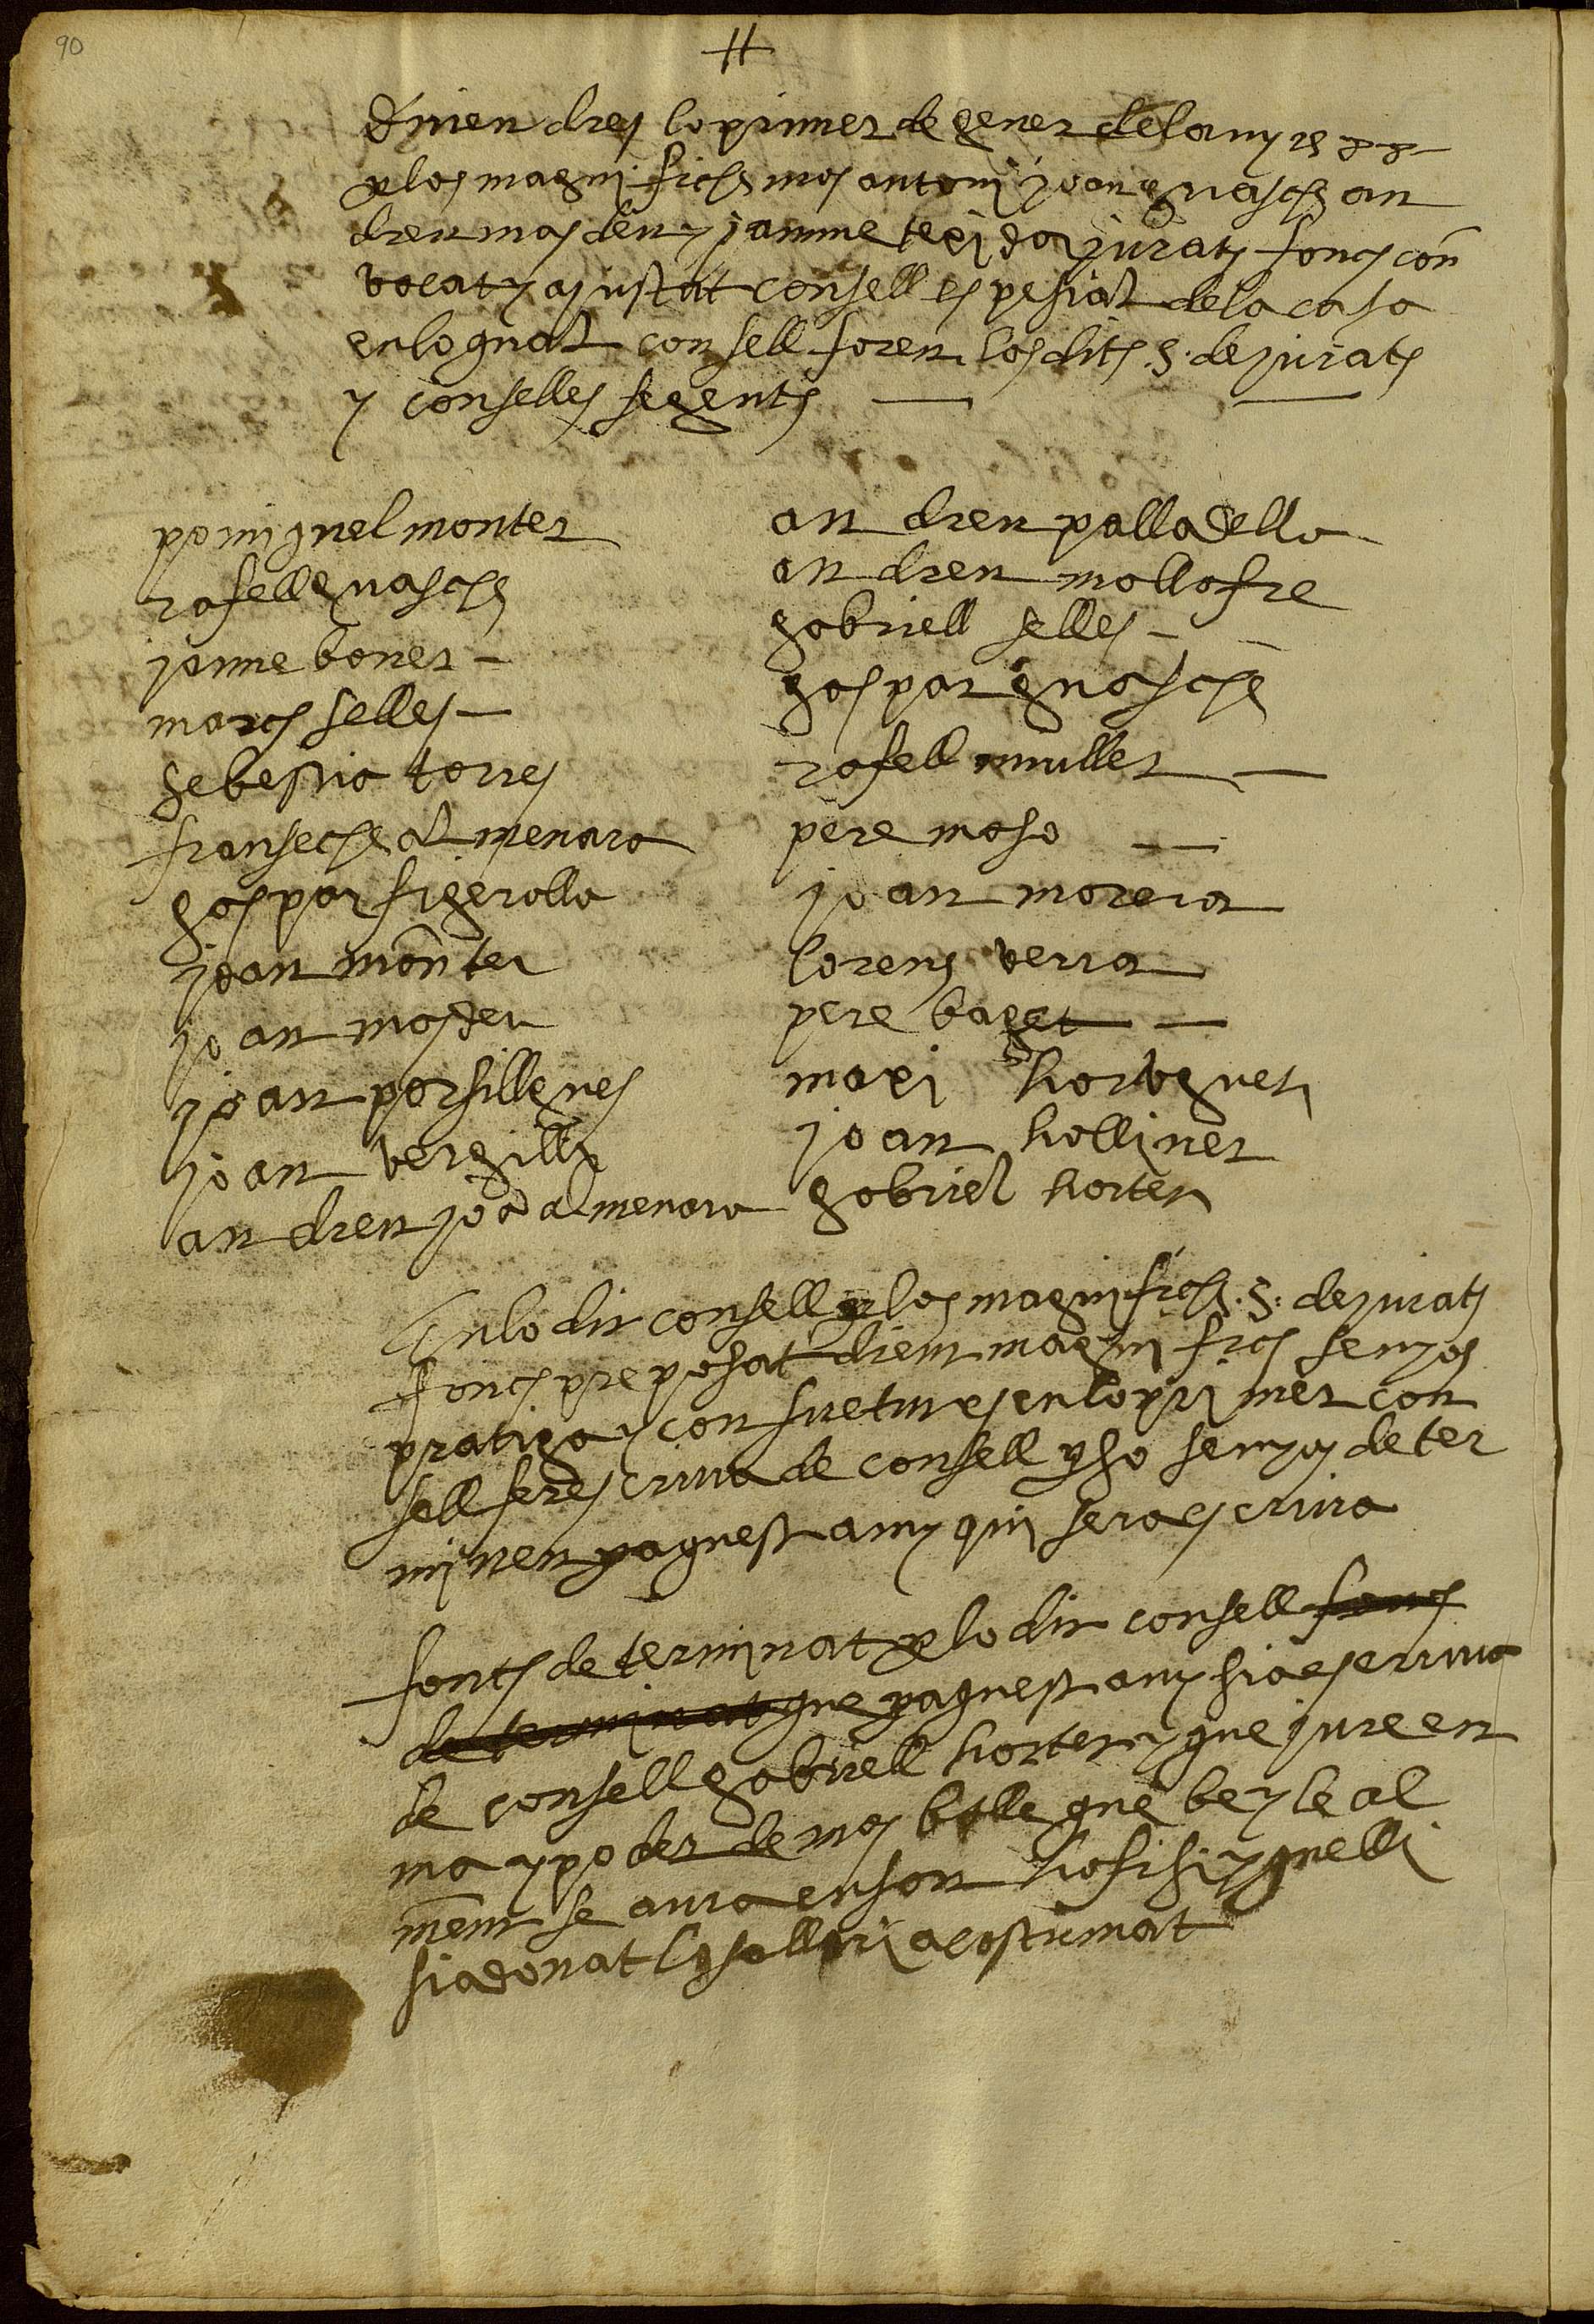 90
divendres lo primer de gener de lany 1588
p los magnifichs mos antoni joan guasch an
dreu masdeu y jaume texidor jurats fonch con
vocat y ajustat consell espesial de la casa
en lo qual consell foren los dits s. de jurats
y consellės segents
po miguel monter
rafell guasch
jaume boner
march selles
sebestia torres
fransech almenara
gaspar figerolla
joan monter
joan masdeu
joan porsillgues
joan vergilli
andreu joa almenara
andreu palladella
andreu mollofre
gabriell selles
gaspar guasch
rafell muller
pere masó
joan morera
lorens verra
pere baget
magi hortoguer
joan holliner
gabriel horter
En lo dit consell p los magnifichs s. de jurats
fonch preposat dient magnifichs senyos
pratiga y consuetut es en lo primer con
sell fer escriva de consell p so senyos deter
minen p aquest any qui sera escriva
fonch determinat p lo dit consell fonch
determinat que p aquest any sia escriva
de consell gabriell horter y que jure en
ma y poder de mos batlle que be y leal
ment se aura en son hofisi y quelli
sia donat lo sallari acostumat